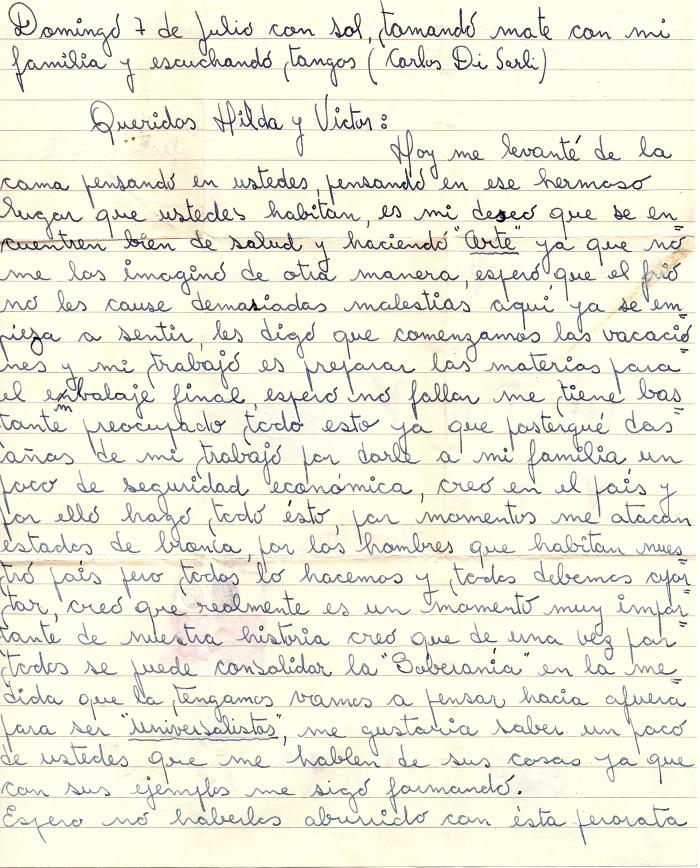 Domingó 7 de julio con sol, tomandó mate con mi
familia y escuchandó tangos (Carlos Di Sarli)
Queridos Hilda y Victor:
Hoy me levanté de la
cama pensandó en ustedes, pensandó en ese hermoso
lugar que ustedes habitan, es mi deseó que se en=
cuentren bien de salud y haciendó "arte" ya que nó
me los imaginó de otra manera, esperó que el frió
nó les cause demasiadas molestias aquí ya se em=
pieza a sentir, les digó que comenzamos las vacació=
nes y mi trabajó es preparar las materias para
el embalaje final, esperó nó fallar me tiene bas=
tante preocupado todo esto ya que postergué dos
años de mi trabajó por darle a mi familia un
poco de seguridad económica, creó en el país y
por elló hagó todó ésto, por momentos me atacan
estados de bronía, por los hombres que habitan nues=
tró país pero todos lo hacemos y todos debemos apor=
tar, creó que realmente es un momentó muy impor=
tante de nuestra historia creó que de una vez por
todas se puede consolidar la "Soberanía" en la me=
dida que la tengamos vamos a pensar hacia afuera
para ser "universalistas", me gustaría saber un pocó
de ustedes que me hablen de sus cosas ya que
con sus ejemplos me sigó formandó.
Espero nó haberlos aburrido con ésta perorata